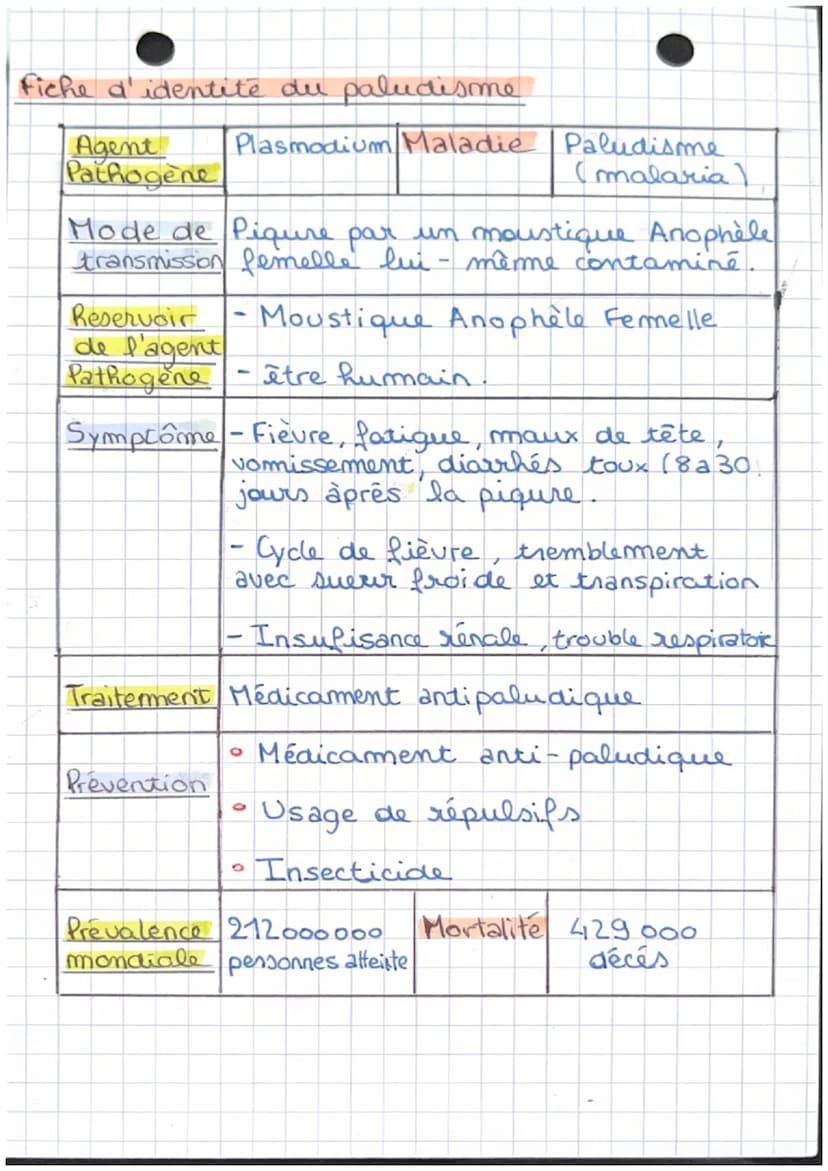 Fiche d'identité du paludisme
Agent Plasmodium Maladie Paludisme
Pathogène (malaria)
Mode de Piqure par un moustique Anophèle
transmission femelle lui-même contaminé.
Réservoir - Moustique Anophèle Femelle
de l'agent
Pathogène - être humain.
Symptôme - Fièvre, fatigue, maux de tête,
vomissement, diarrhés toux (8 a 30
jours àprês la piqure.
- Cycle de fièvre, tremblement
avec sueur froide et transpiration
- Insufisance rénale, trouble respiratoir
Traitement Médicament antipaludique
• Médicament anti-paludique
Prévention
• Usage de répulsifs
• Insecticide
Prévalence 212000000 Mortalité 429 000
mondiale personnes atteinte décés